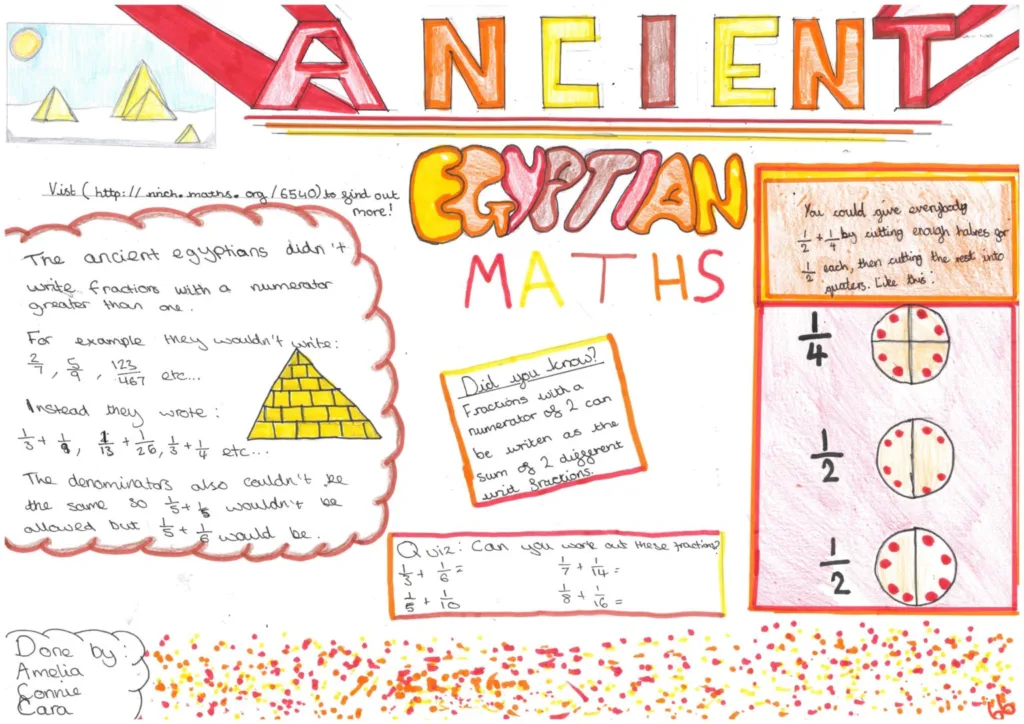 ANCIENT
EGYPTIAN
MATHS
Visit (http://nrich.maths.org/6540) to find out
more!
The ancient egyptians didn't
write fractions with a numerator
greater than one.
For example they wouldn't write:
2/7, 5/9, 123/467 etc...
Instead they wrote:
1/3 + 1/9, 1/13 + 1/26, 1/3 + 1/4 etc...
The denominators also couldn't be
the same so 1/5 + 1/5 wouldn't be
allowed but 1/5 + 1/6 would be.
Did you know?
Fractions with a
numerator of 2 can
be writen as the
sum of 2 different
unit fractions.
Quiz: Can you work out these fractions?
1/3 + 1/6 =
1/7 + 1/14 =
1/5 + 1/10
1/8 + 1/16 =
You could give everybody
1/2 + 1/4 by cutting enough halves for
1/2 each, then cutting the rest into
quaters. Like this:
1/4
1/2
1/2
Done by:
Amelia
Connie
Cara